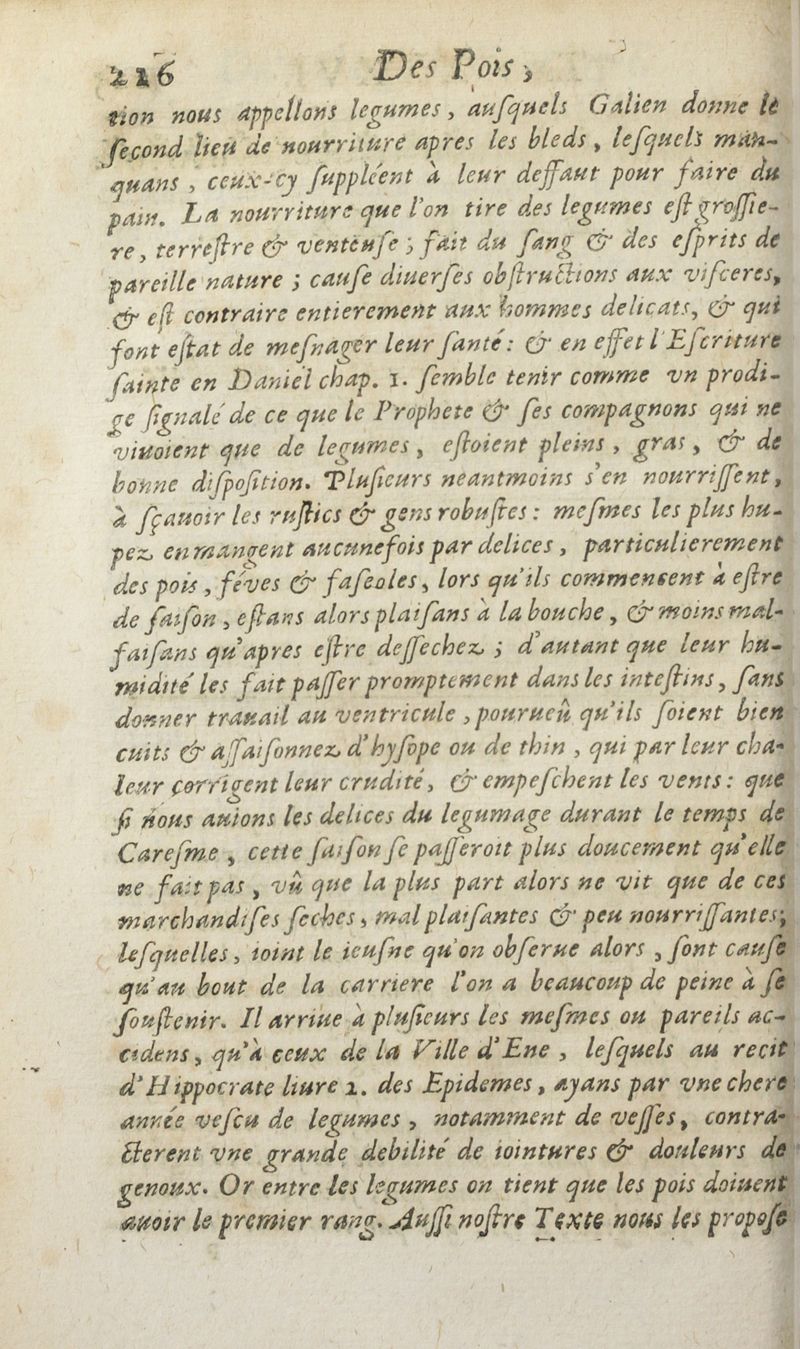 216 Des Pois,
tion nous appellons legumes, auſquels Galien donne le
ſecond lieu de nourriture apres les bleds, leſquels man-
quans, ceux-cy ſuppléent à leur deffaut pour faire du
pain. La nourriture que l'on tire des legumes eſt groſſie-
re, terreſtre & venteuſe; fait du ſang & des eſprits de
pareille nature; cauſe diuerſes obſtructions aux viſceres,
& eſt contraire entierement aux hommes delicats, & qui
font eſtat de meſnager leur ſanté: & en effet l'Eſcriture
ſainte en Daniel chap. 1. ſemble tenir comme vn prodi-
ge ſignalé de ce que le Prophete & ſes compagnons qui ne
viuoient que de legumes, eſtoient pleins, gras, & de
bonne diſpoſition. Pluſieurs neantmoins s'en nourriſſent,
à ſçauoir les ruſtics & gens robuſtes: meſmes les plus hu-
pez en mangent aucunefois par delices, particulierement
des pois, féves & faſeoles, lors qu'ils commencent à eſtre
de ſaiſon, eſtans alors plaiſans à la bouche, & moins mal-
faiſans qu'apres eſtre deſſechez; d'autant que leur hu-
midité les fait paſſer promptement dans les inteſtins, ſans
donner trauail au ventricule, pourueû qu'ils ſoient bien
cuits & aſſaiſonnez d'hyſope ou de thin, qui par leur cha-
leur corrigent leur crudité, & empeſchent les vents: que
ſi nous auions les delices du legumage durant le temps de
Careſme, cette ſaiſon ſe paſſeroit plus doucement qu'elle
ne fait pas, vû que la plus part alors ne vit que de ces
marchandiſes ſeches, mal plaiſantes & peu nourriſſantes;
leſquelles, ioint le ieuſne qu'on obſerue alors, ſont cauſe
qu'au bout de la carriere l'on a beaucoup de peine à ſe
ſouſtenir. Il arriue à pluſieurs les meſmes ou pareils ac-
cidens, qu'à ceux de la Ville d'Ene, leſquels au recit
d'Hippocrate liure 2. des Epidemes, ayans par vne chere
année veſcu de legumes, notamment de veſſes, contra-
cterent vne grande debilité de iointures & douleurs de
genoux. Or entre les legumes on tient que les pois doiuent
auoir le premier rang. Auſſi noſtre Texte nous les propoſe